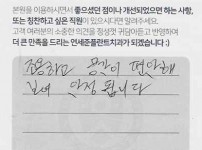 본원을 이용하시면서 좋으셨던 점이나 개선되었으면 하는 사항,
또는 칭찬하고 싶은 직원이 있으시다면 알려주세요.
고객 여러분의 소중한 의견을 정성껏 귀담아듣고 반영하여
더 큰 만족을 드리는 연세준플란트치과가 되겠습니다 :)
조용하고 공간이 편안해
보여 안정 됩니다